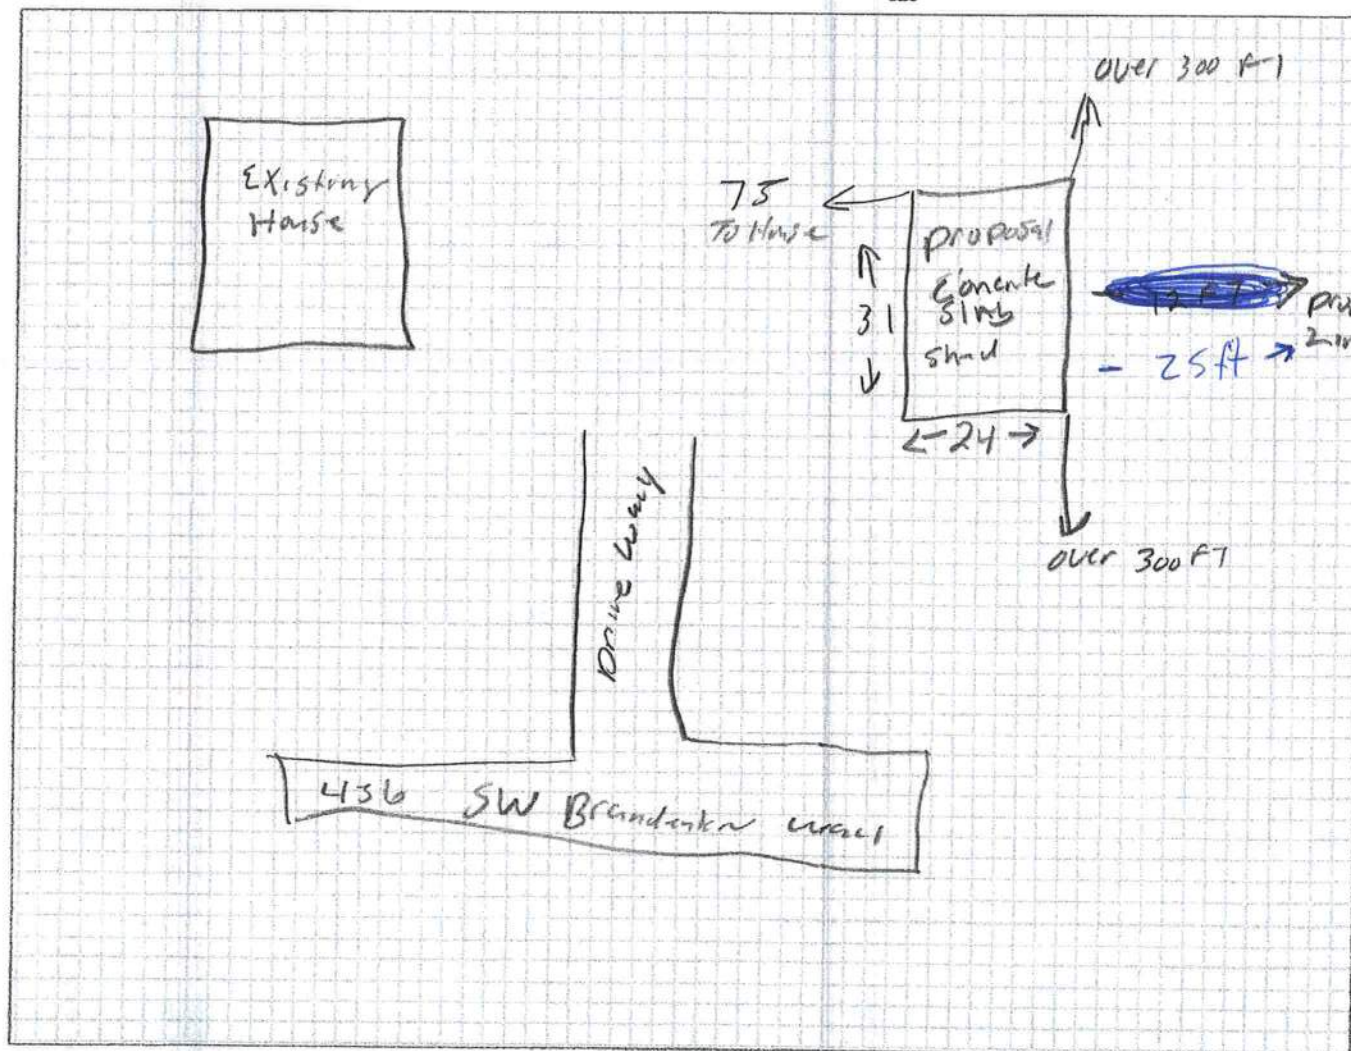 over 300 FT
Existing
House
75
To House
proposal
Concrete
Slab
shed
31
12 FT
- 25 ft →
←24→
over 300 FT
Drive way
436 SW